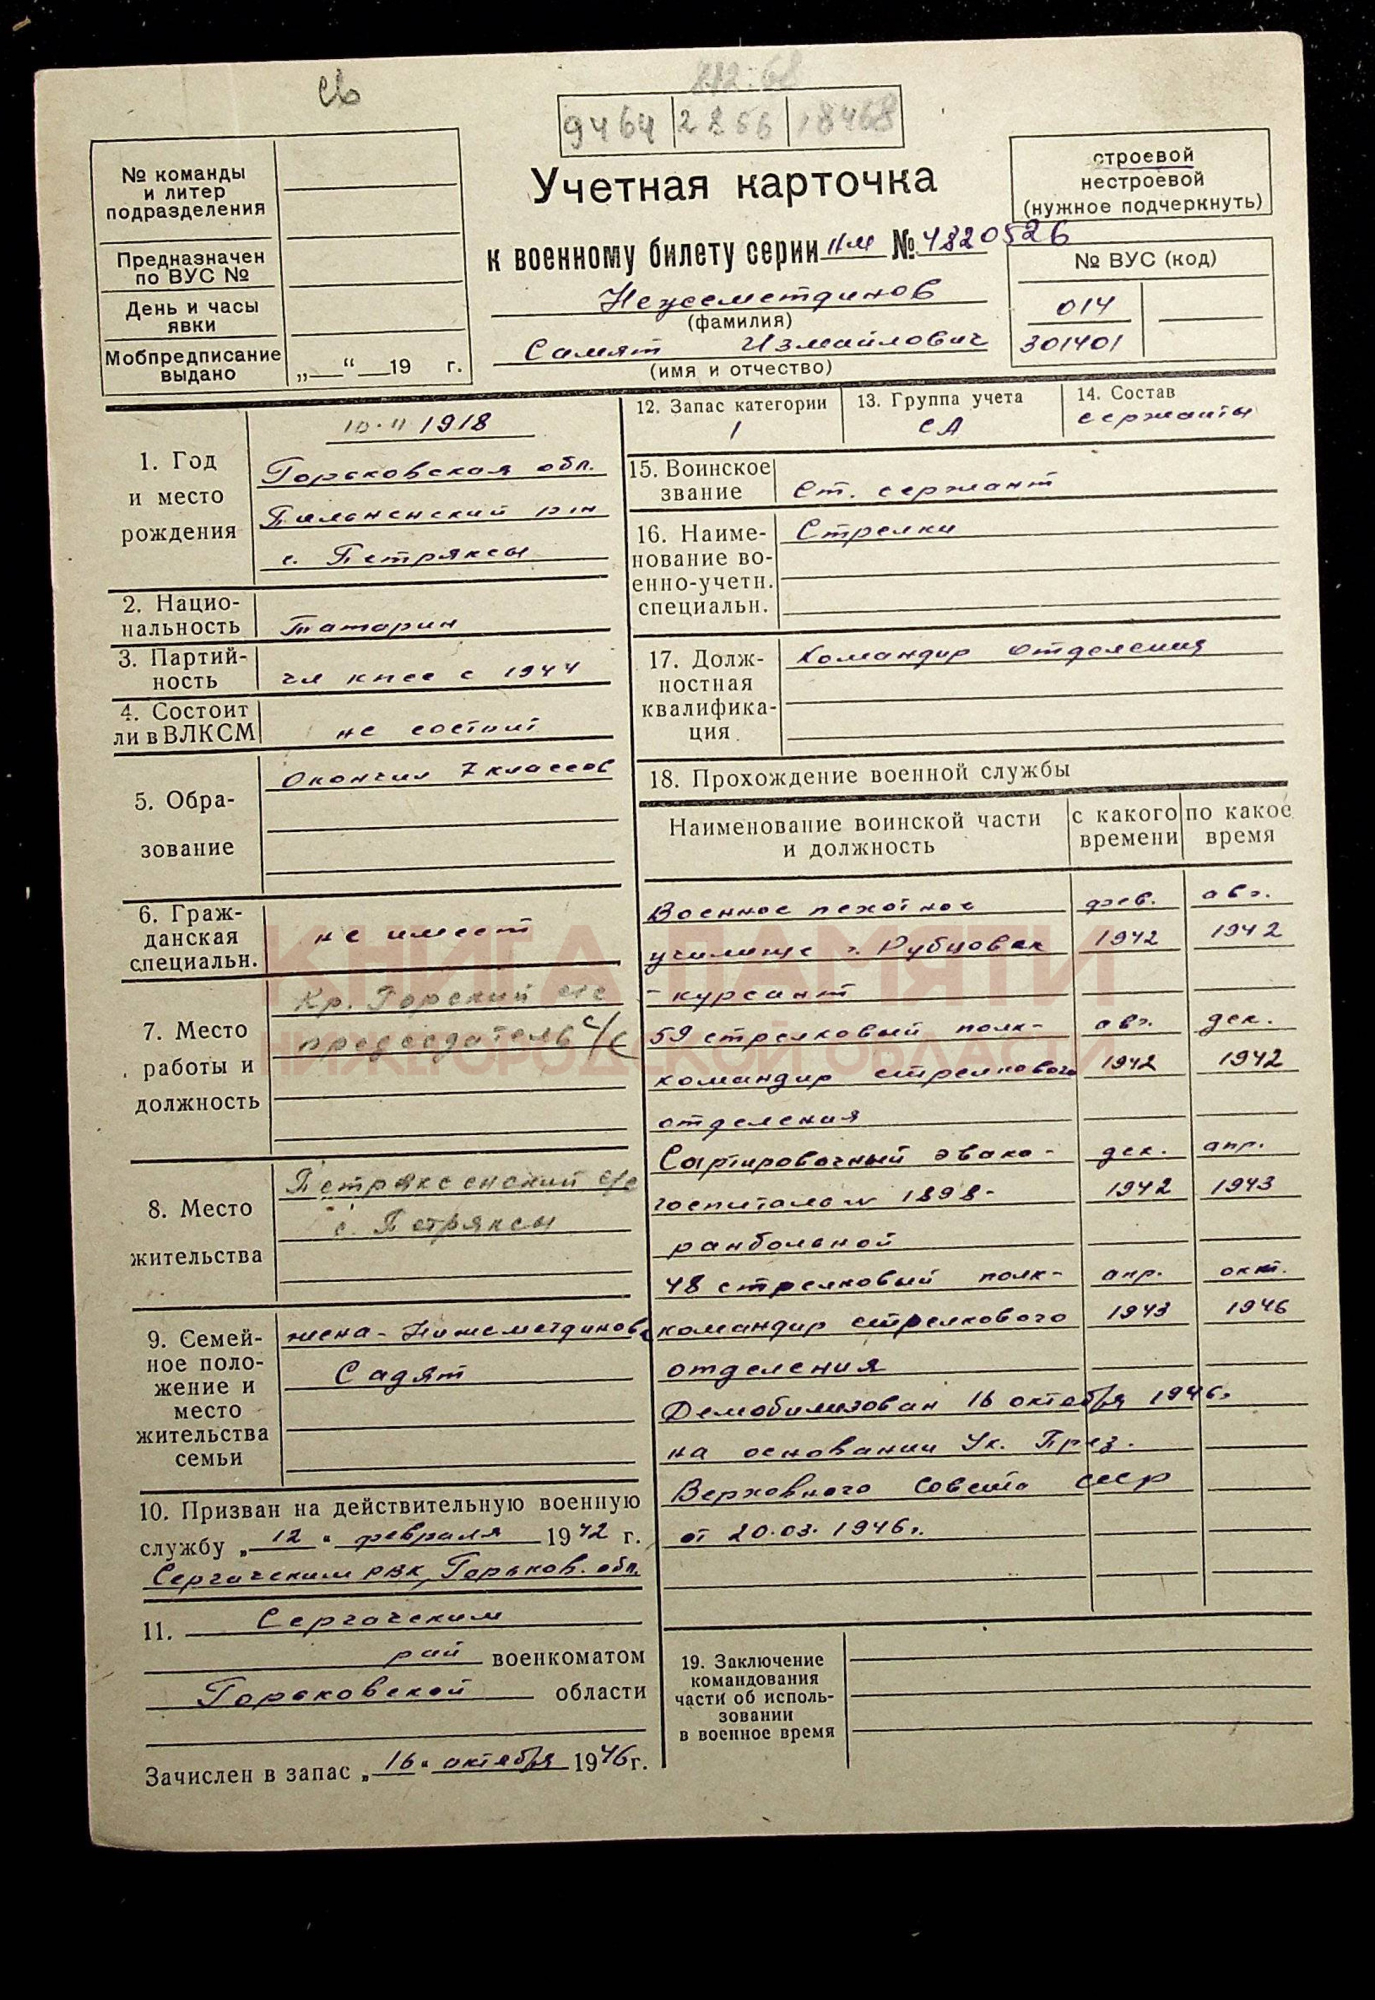 св
812.68
9464 2856 18468
№ команды
и литер
подразделения
Предназначен
по ВУС №
День и часы
явки
Мобпредписание
выдано „ “ 19 г.
Учетная карточка
к военному билету серии НМ № 4820526
(фамилия)
Самят Измайлович
(имя и отчество)
строевой
нестроевой
(нужное подчеркнуть)
№ ВУС (код)
014
301401
1. Год
и место
рождения
10.II 1918
Горьковская обл.
Пильненский р-н
с. Петряксы
2. Нацио-
нальность
татарин
3. Партий-
ность
чл кпсс с 1944
4. Состоит
ли в ВЛКСМ
не состоит
5. Обра-
зование
Окончил 7 классов
6. Граж-
данская
специальн.
не имеет
7. Место
работы и
должность
Кр. Горский с/с
председатель с/с
8. Место
жительства
Петряксенский с/с
с. Петряксы
9. Семей-
ное поло-
жение и
место
жительства
семьи
жена - Нижеметдинова
Садят
10. Призван на действительную военную
службу „12“ февраля 1942 г.
Сергачским РВК, Горьков. обл.
11. Сергачским
рай военкоматом
Горьковской области
Зачислен в запас „16“ октября 1946 г.
12. Запас категории
1
13. Группа учета
СА
14. Состав
сержанты
15. Воинское
звание
Ст. сержант
16. Наиме-
нование во-
енно-учетн.
специальн.
Стрелки
17. Долж-
ностная
квалифика-
ция
Командир отделения
18. Прохождение военной службы
Наименование воинской части
и должность
с какого
времени
по какое
время
Военное пехотное фев. авг.
училище г. Рубцовск 1942 1942
- курсант
59 стрелковый полк- авг. дек.
командир стрелкового 1942 1942
отделения
Сортировочный эвако- дек. апр.
госпиталь № 1898- 1942 1943
ранбольной
48 стрелковый полк- апр. окт.
командир стрелкового 1943 1946
отделения
Демобилизован 16 октября 1946г.
на основании Ук. През.
Верховного Совета СССР
от 20.03.1946г.
19. Заключение
командования
части об исполь-
зовании
в военное время
КНИГА ПАМЯТИ
НИЖЕГОРОДСКОЙ ОБЛАСТИ